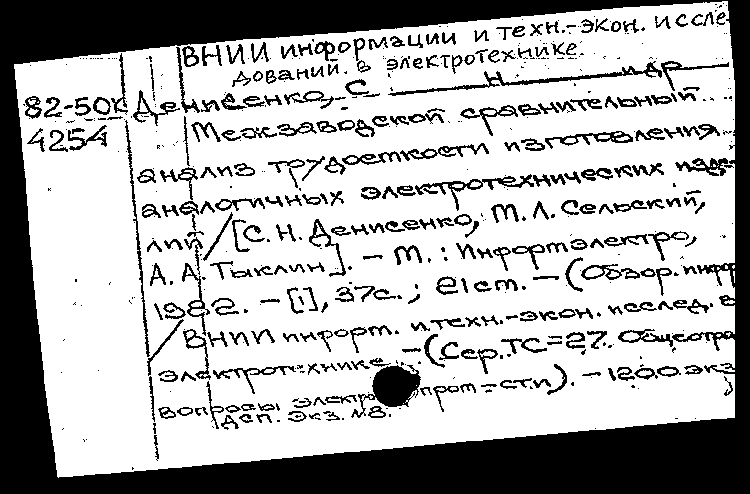 ВНИИ информации и техн.-экон. иссле-
дований. в электротехнике.
82-50К Денисенко, С Н и др
4254 Межзаводской сравнительный
анализ трудоемкости изготовления
аналогичных электротехнических изде-
лий / [С. Н. Денисенко, М. Л. Сельский,
А. А. Тыклин]. – М. : Информэлектро,
1982. – [1], 37с. ; 21 см. – (Обзор. информ
/ ВНИИ информ. и техн.-экон. исслед. в
электротехнике. – (Сер. ТС-27. Общеотра
вопросы электро пром-сти). – 1200 экз
Деп. экз. №3.